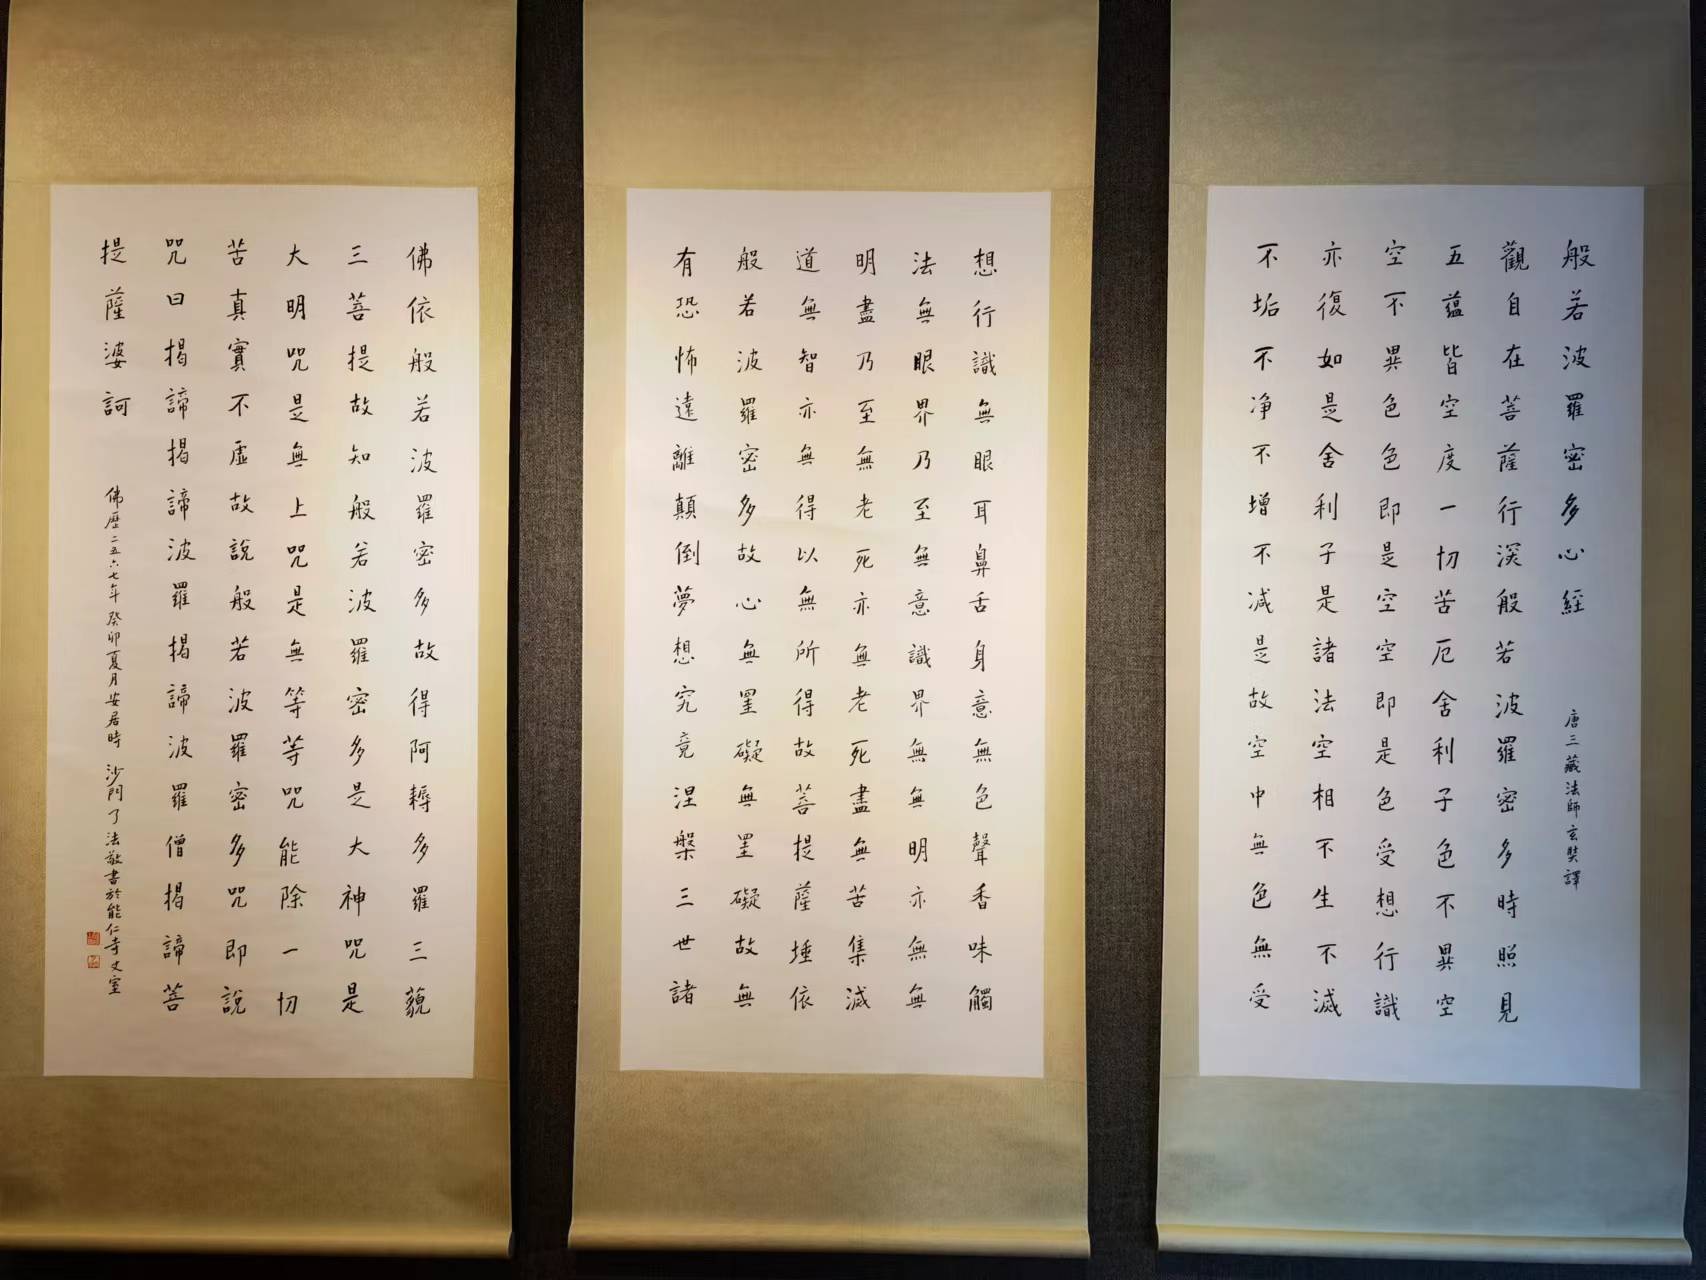 般若波羅密多心經
唐三藏法師玄奘譯
觀自在菩薩行深般若波羅密多時照見
五蘊皆空度一切苦厄舍利子色不異空
空不異色色即是空空即是色受想行識
亦復如是舍利子是諸法空相不生不滅
不垢不净不增不减是故空中無色無受
想行識無眼耳鼻舌身意無色聲香味觸
法無眼界乃至無意識界無無明亦無無
明盡乃至無老死亦無老死盡無苦集滅
道無智亦無得以無所得故菩提薩埵依
般若波羅密多故心無罣礙無罣礙故無
有恐怖遠離顛倒夢想究竟涅槃三世諸
佛依般若波羅密多故得阿耨多羅三藐
三菩提故知般若波羅密多是大神咒是
大明咒是無上咒是無等等咒能除一切
苦真實不虛故說般若波羅密多咒即說
咒曰揭諦揭諦波羅揭諦波羅僧揭諦菩
提薩婆訶
佛曆二五六七年癸卯夏月安居時 沙門了法敬書於能仁寺丈室